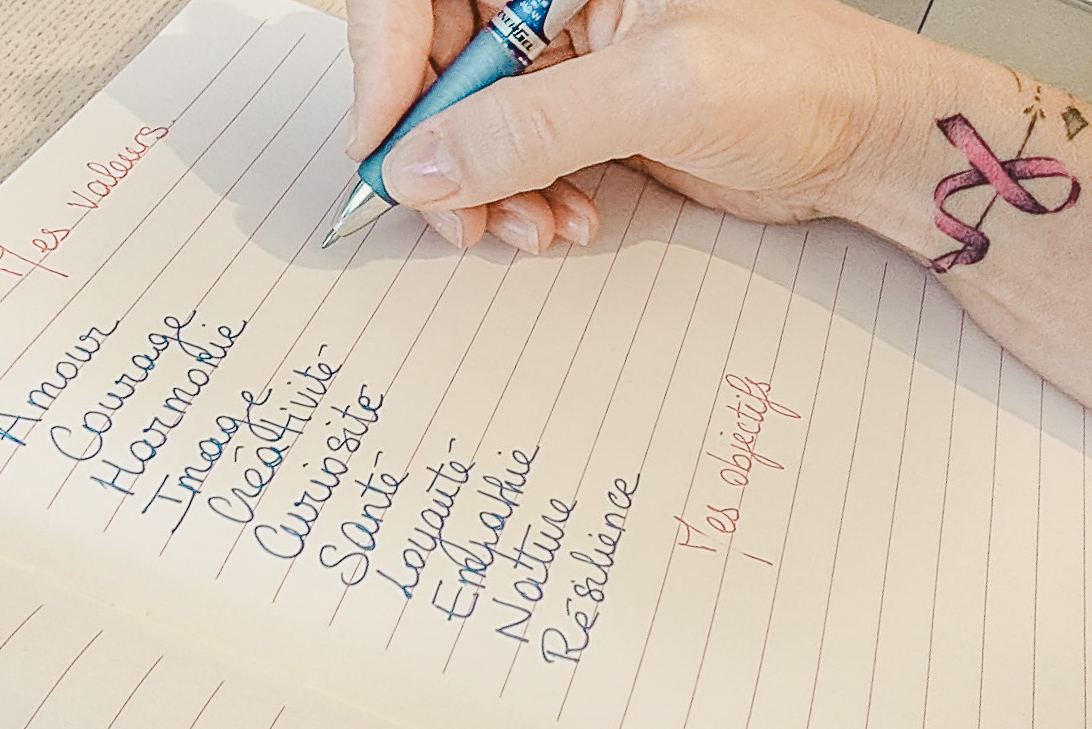 Mes valeurs
Amour
Courage
Harmonie
Image
Créativité
Curiosité
Santé
Loyauté
Empathie
Nature
Résilience
Mes objectifs
ENERGEL